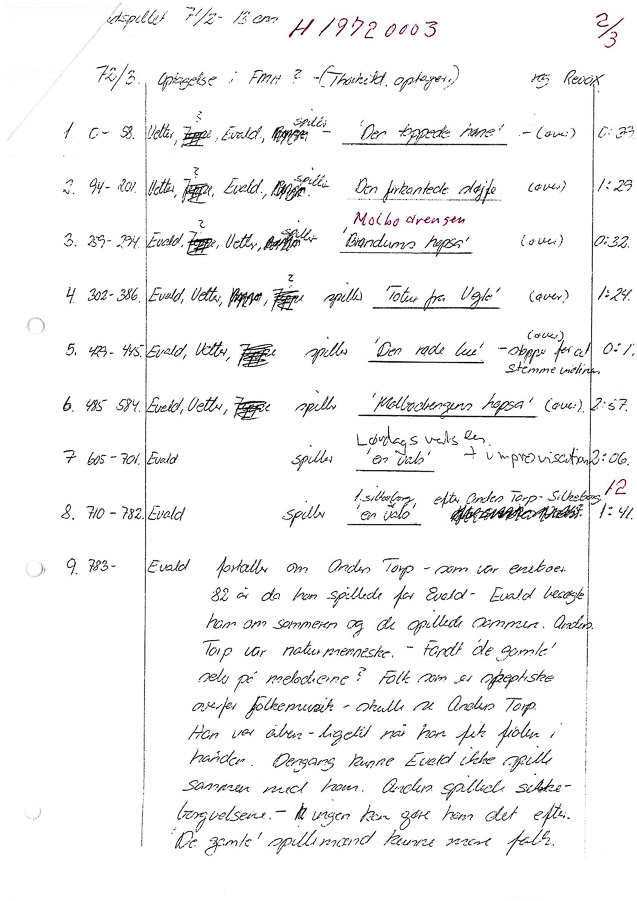 dspillet 7 1/2 - 13 cm H 1972 0003 2/3
72/3. Optagelse i FMH? - (Thorkild. optager.) Revox
1. 0 - 58. Vetter, ? Evald, spiller - 'Den toppede høne' - (over) 0:33
2. 94 - 201. Vetter, ? Evald, spiller Den firkantede sløjfe (over) 1:29
Molbodrengen
3. 259 - 294. Evald, ? Vetter, spiller 'Brandums hopsa' (over) 0:32.
4. 302 - 386. Evald, Vetter, ? spiller 'Totur fra Vejle' (over) 1:24.
(over)
5. 429 - 445. Evald, Vetter, spiller 'Den røde lue' - stopper for at 0:1
stemme violinen
6. 485 584. Evald, Vetter, spiller 'Molbodrengens hopsa' (over). 2:57.
Lørdags valsen
7 605 - 701. Evald spiller 'en vals' + improvisation 2:06.
1. silkeborg efter Anders Torp - Silkeborg 12
8. 710 - 782. Evald spiller 'en vals' 1:41.
9. 783- Evald fortæller om Anders Torp - som var eneboer
82 år da han spillede for Evald - Evald besøgte
ham om sommeren og de spillede sammen. Anders
Torp var naturmenneske. - Fandt 'de gamle'
selv på melodierne? Folk som er skeptiske
overfor folkemusik - skulle se Anders Torp.
Han var åben - ligetil når han fik fiolen i
hånden. Dengang kunne Evald ikke spille
sammen med ham. Anders spillede silke-
borgvalsene. - ingen kan gøre ham det efter.
'De gamle' spillemænd kunne mere